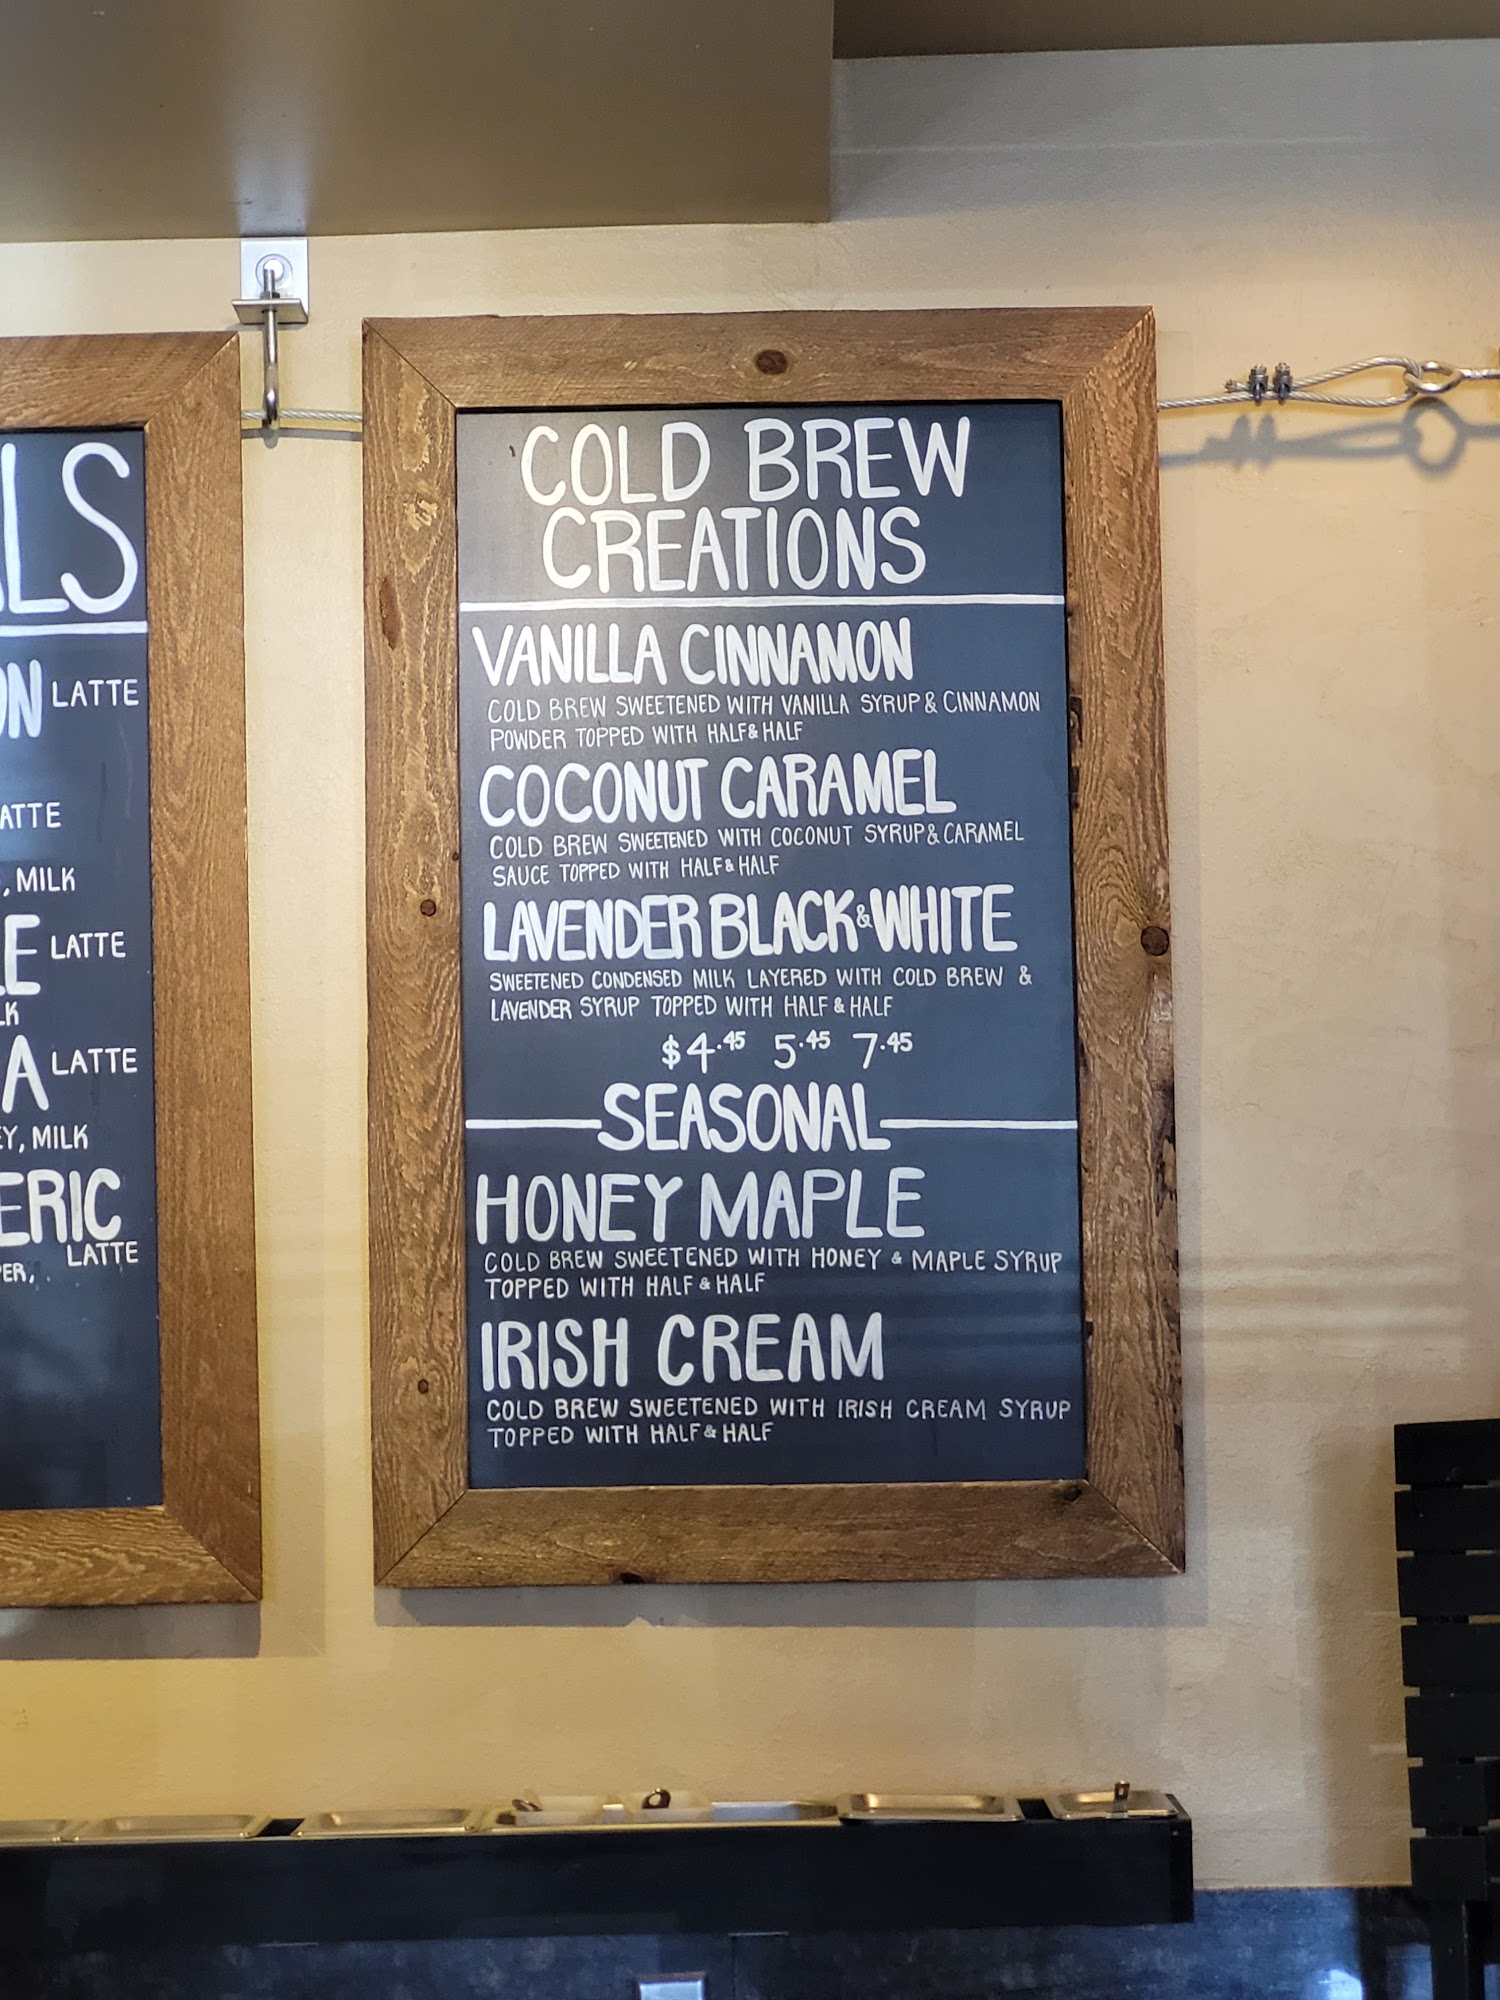 LATTE
LATTE
MILK
LATTE
LATTE
MILK
LATTE
COLD BREW
CREATIONS
VANILLA CINNAMON
COLD BREW SWEETENED WITH VANILLA SYRUP & CINNAMON
POWDER TOPPED WITH HALF & HALF
COCONUT CARAMEL
COLD BREW SWEETENED WITH COCONUT SYRUP & CARAMEL
SAUCE TOPPED WITH HALF & HALF
LAVENDER BLACK & WHITE
SWEETENED CONDENSED MILK LAYERED WITH COLD BREW &
LAVENDER SYRUP TOPPED WITH HALF & HALF
$4.45 5.45 7.45
SEASONAL
HONEY MAPLE
COLD BREW SWEETENED WITH HONEY & MAPLE SYRUP
TOPPED WITH HALF & HALF
IRISH CREAM
COLD BREW SWEETENED WITH IRISH CREAM SYRUP
TOPPED WITH HALF & HALF